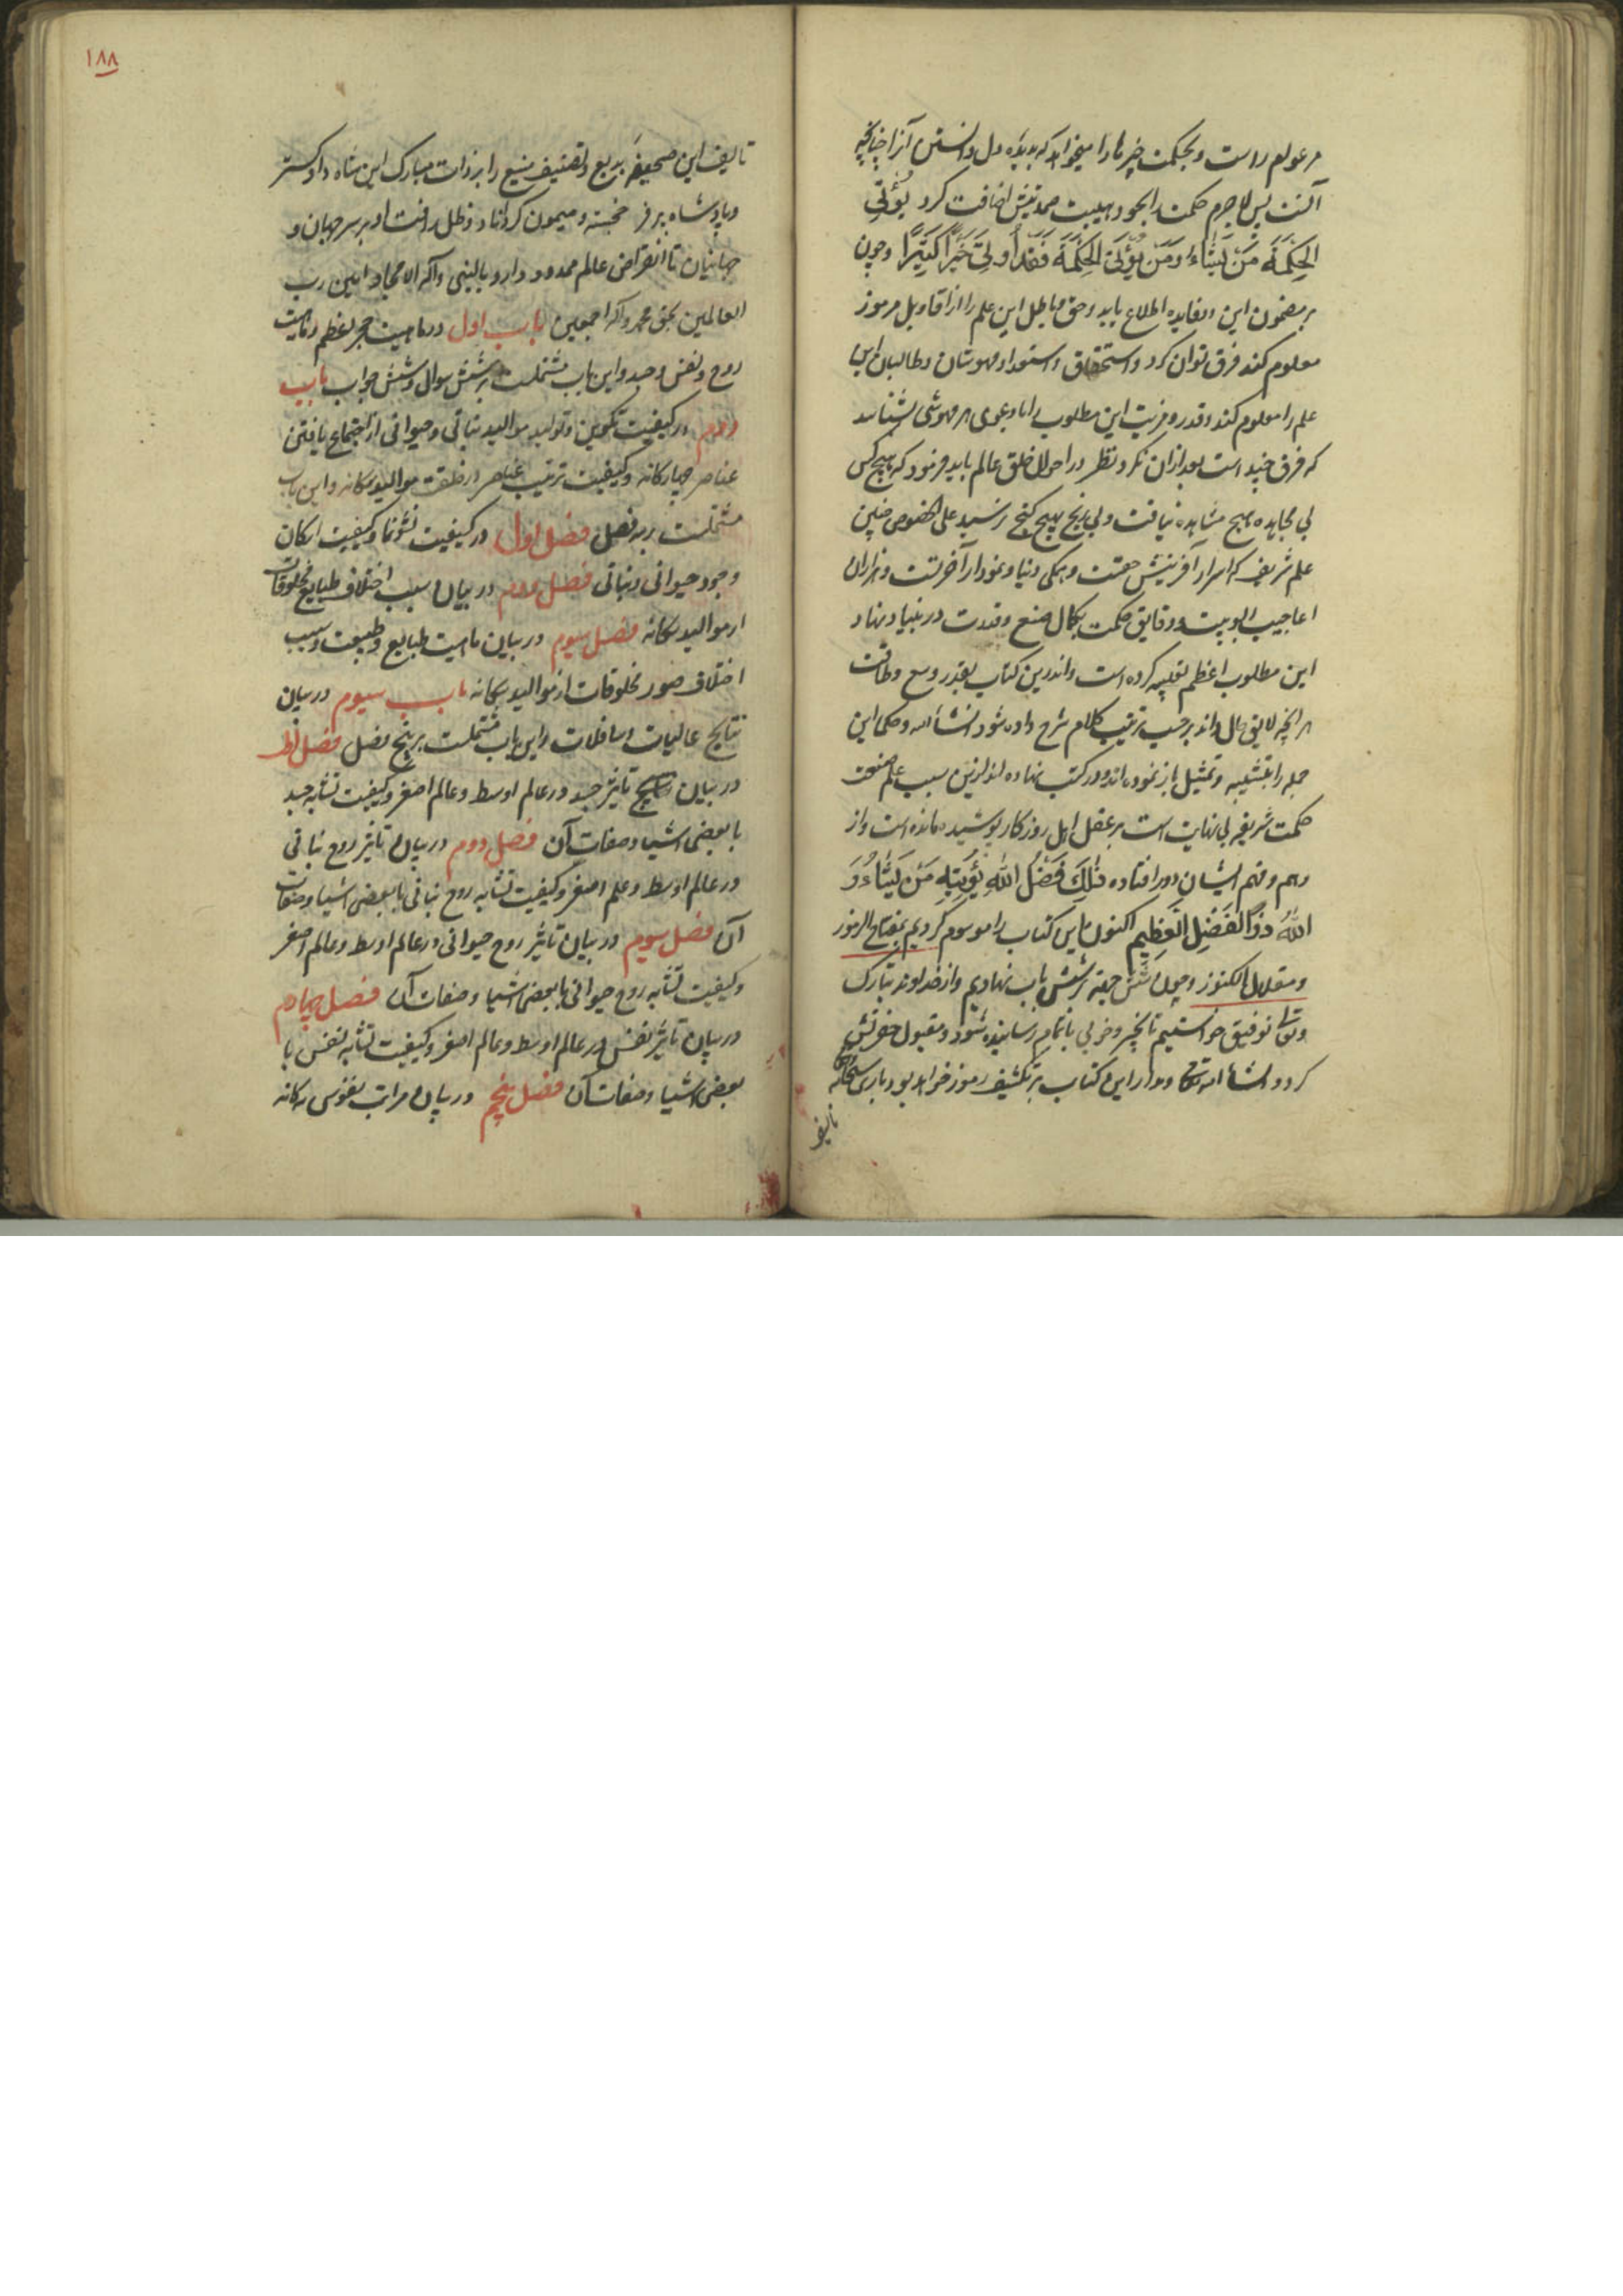 مر عوام راست و بحکمت خیر ما را میخواهد که بدیده دل دانستن آنرا چنانچه
آلتست پس لاجرم حکمت را بخود بهیبت صمدیتش اضافت کرد یُؤتِی
الحِکمَةَ مَن یَشَاءُ وَمَن یُؤتَ الحِکمَةَ فَقَد اُولِیَ خَیرًا کَثِیرًا و چون
بر مضمون این و بفایده اطلاع یابد و حق و باطل این علم را از اقاویل مرموز
معلوم کند فرق توان کرد و استحقاق و استعداد و مهوشان و طالبان این
علم را معلوم کند و قدر و مزیت این مطلوب را تا دعوی هر مهوشی بشناسد
که فرق چند است بعد از ان فکر و نظر در احوال خلق عالم باید فرمود که هیچ کس
بی مجاهده بهیچ مشاهده نیافت و بی رنج بهیچ گنج نرسید علی الخصوص چنین
علم شریف که اسرار آفرینش حقست و همگی دنیا و نمودار آخرتست و هزاران
اعاجیب الوهیت و دقایق حکمت بکمال صنع و قدرت در بنیاد نهاد
این مطلوب اعظم تعبیه کرده است و اندرین کتاب بقدر وسع و طاقت
هر آنچه لایق حال داند بر حسب ترتیب کلام شرح داده شود انشاالله و حکما این
جمله را بتشبیه و تمثیل باز نموده اند و در کتب نهاده اند ازین سبب علم صنعت
حکمت شریفه بی نهایت است بر عقل اهل روزگار پوشیده مانده است و از
وهم و فهم ایشان دور افتاده ذٰلِکَ فَضلُ اللهِ یُؤتِیهِ مَن یَشَاءُ وَ
اللهُ ذوالفَضلِ العَظِیم اکنون ما این کتاب را موسوم کردیم بمفتاح الرموز
و مقلاد الکنوز و چون شش جهة بر شش باب نهادیم و از خداوند تبارک
و تعالی توفیق خواستیم تا بخیر و خوبی باتمام رسانیده شود و مقبول حضرتش
کردد انشا الله تعالی و مدار این کتاب بر کشف رموز خواهد بود باری سبحانه
تالیف
۱۸۸
تالیف این صحیفه بدیع و تصنیف منیع را بر ذات مبارک این شاه دادگستر
و پادشاه پر فر خجسته و میمون گرداناد و ظل رافت او بر سر جهان و
جهانیان تا انقراض عالم ممدود دارد بالنبی و آله الامجاد امین رب
العالمین بحق محمد و آله اجمعین باب اول در ماهیت حجر اعظم و ماهیت
روح و نفس و جسد و این باب مشتملست بر شش سوال و شش جواب باب
دوم در کیفیت تکوین و تولید موالید نباتی و حیوانی از اجتماع یافتن
عناصر چهارکانه و کیفیت ترتیب عناصر در خلقت موالید سکانه و این باب
مشتملست بر سه فصل فصل اول در کیفیت نشو نما و کیفیت ارکان
وجود حیوانی و نباتی فصل دوم در بیان سبب اختلاف طبایع مخلوقات
از موالید سکانه فصل سیوم در بیان ماهیت طبایع و طبیعت و سبب
اختلاف صور مخلوقات از موالید سکانه باب سیوم در بیان
نتایج عالیات و سافلات و این باب مشتملست بر پنج فصل فصل اول
در بیان تاثیر جسد در عالم اوسط و عالم اصغر و کیفیت تشابه جسد
با بعضی اشیا و صفات آن فصل دوم در بیان تاثیر روح نباتی
در عالم اوسط و علم اصغر و کیفیت تشابه روح نباتی با بعضی اشیا و صفات
آن فصل سیوم در بیان تاثیر روح حیوانی در عالم اوسط و عالم اصغر
و کیفیت تشابه روح حیوانی با بعضی اشیا و صفات آن فصل چهارم
در بیان تاثیر نفس در عالم اوسط و عالم اصغر و کیفیت تشابه نفس با
بعضی اشیا و صفات آن فصل پنجم در بیان مراتب نفوس سه کانه